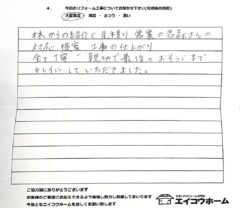 4. 今回のリフォーム工事についてお聞かせ下さい(完成後の感想)
大変満足 ・ 満足 ・ ふつう ・ 悪い
株 からの紹介で 見積り 営業の さんの
対応、提案 工事の仕上がり
全て 丁寧 親切で最高。おそうじまで
キレイにしていただきました。
ご協力誠にありがとうございます
お客様のご要望にお応えできるよう勉強し努力し続けてまいります
今後ともエイコウホームを宜しくお願い致します
エイコウホーム